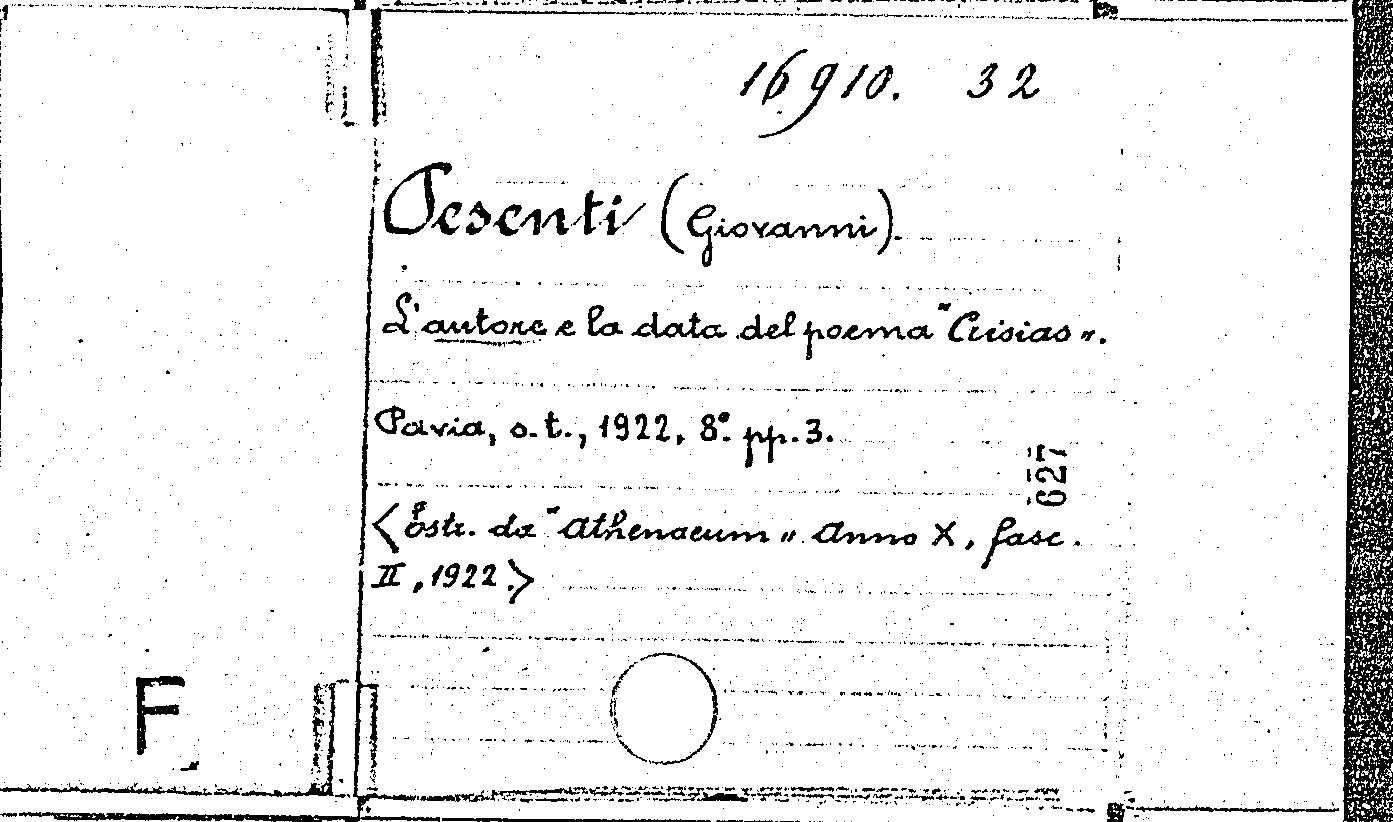 16910. 32
Pesenti (Giovanni).
L'autore e la data del poema "Crisias".
Pavia, s.t., 1922. 8°. pp. 3.
627
<Estr. da "Athenaeum" Anno X, fasc.
II, 1922.>
F